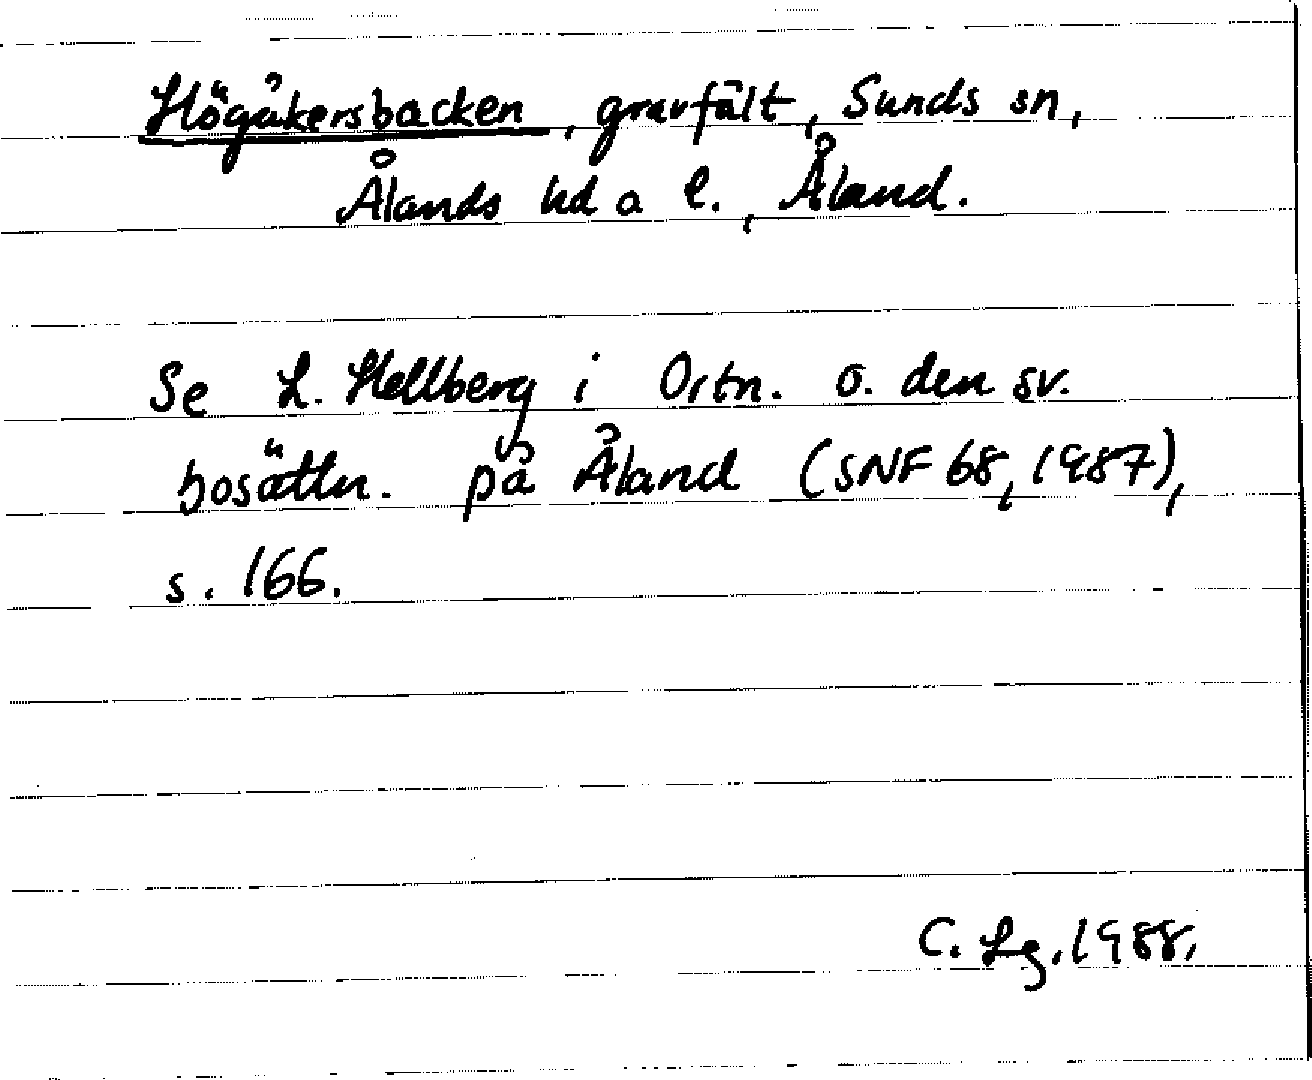 Högåkersbacken, gravfält, Sunds sn,
Ålands hd a l., Åland.
Se L. Hellberg i Ortn. o. den sv.
bosättn. på Åland (SNF 68, 1987),
s. 166.
C. Lg. 1988.